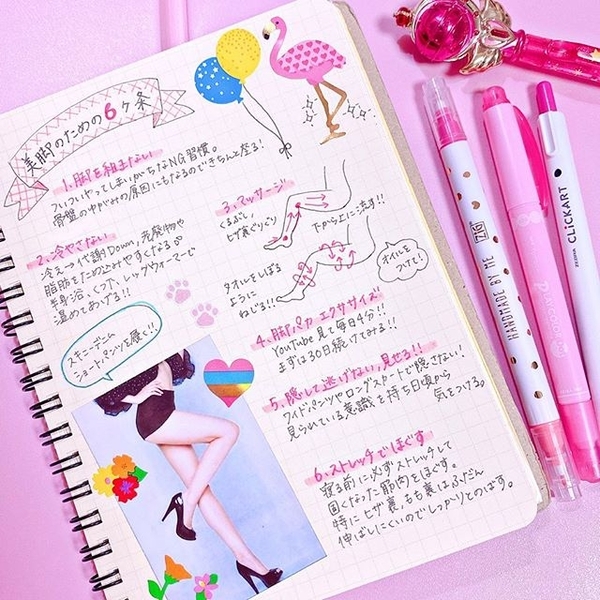 美脚のための6ヶ条
1.脚を組まない
ついついやってしまいがちなNG習慣。
骨盤のゆがみの原因にもなるのできちんと座る!
2.冷やさない
冷え→代謝Down,老廃物や
脂肪をため込みやすくなる。
半身浴、くつ下、レッグウォーマーで
温めてあげる!!
スキニーデニム
ショートパンツを履く!!
3.マッサージ
くるぶし、
ヒザ裏ぐりぐり
下から上に流す!!
タオルをしぼる
ように
ねじる!!
オイルを
つけて!
4.脚パカ エクササイズ
YouTube見て毎日4分!!
まずは30日続けてみる!!
5.隠して逃げない,見せる!!
ワイドパンツやロングスカートで隠さない!
見られている意識を持ち日頃から
気をつける。
6.ストレッチでほぐす
寝る前に必ずストレッチして
固くなった筋肉をほぐす。
特にヒザ裏,もも裏はふだん
伸ばしにくいのでしっかりとのばす。
HANDMADE BY ME
ZIG
CLiCKART